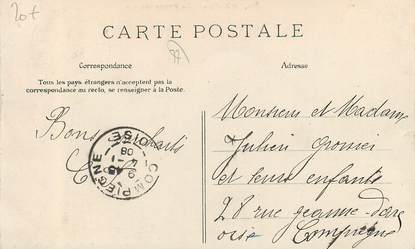 20+
CARTE POSTALE
87
Correspondance
Adresse
Tous les pays étrangers n'acceptent pas la
correspondance au recto, se renseigner à la Poste.
Bons
COMPIEGNE OISE
08
Monsieur et Madame
Julien
et leurs enfants
28 rue jeanne-d'arc
oise Compiègne